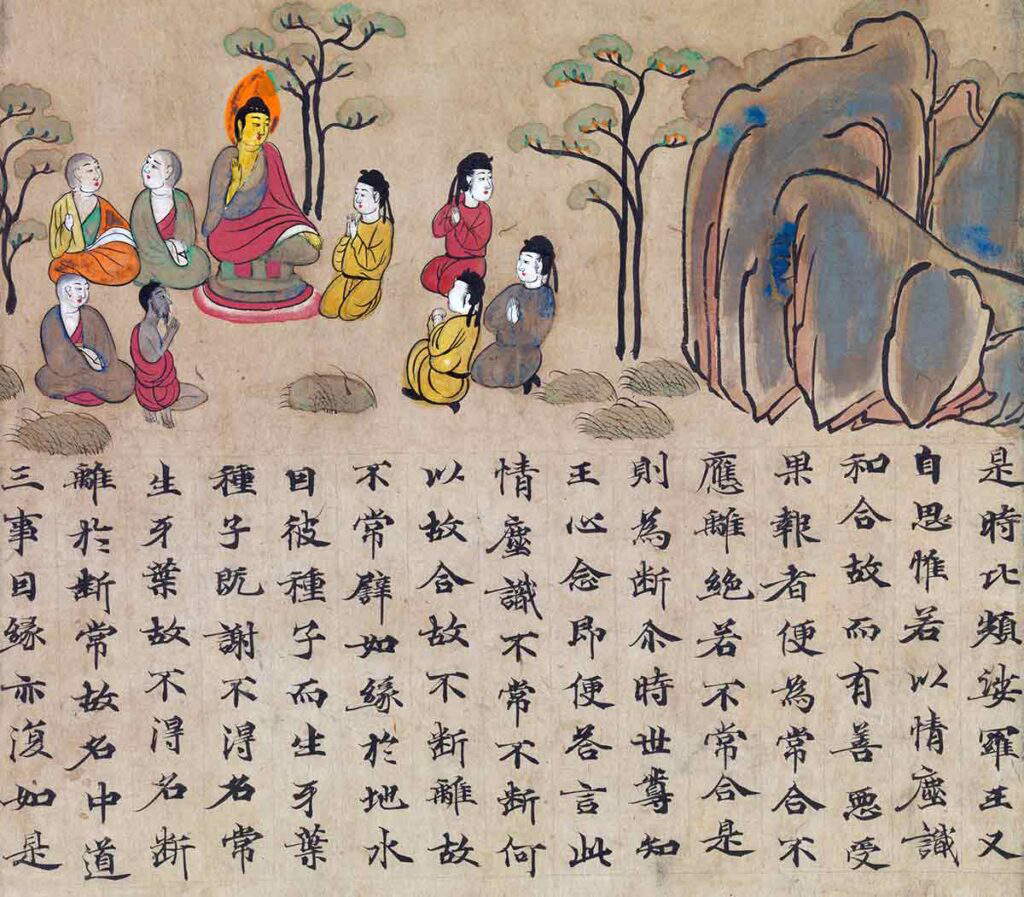 是時比頻娑羅王又
自思惟若以情塵識
和合故而有善惡受
果報者便為常合不
應離絶若不常合是
則為断尒時世尊知
王心念即便答言此
情塵識不常不断何
以故合故不断離故
不常譬如緣於地水
因彼種子而生牙葉
種子既謝不得名常
生牙葉故不得名断
離於断常故名中道
三事因緣亦復如是